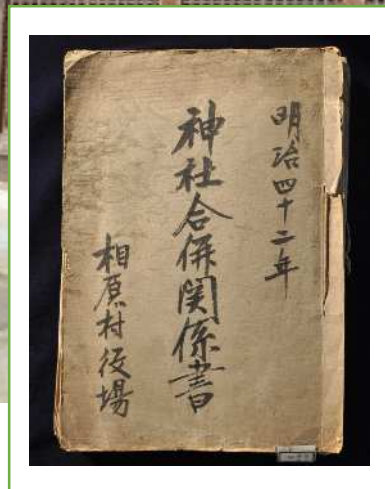 明治四十二年
神社合併関係書
相原村役場